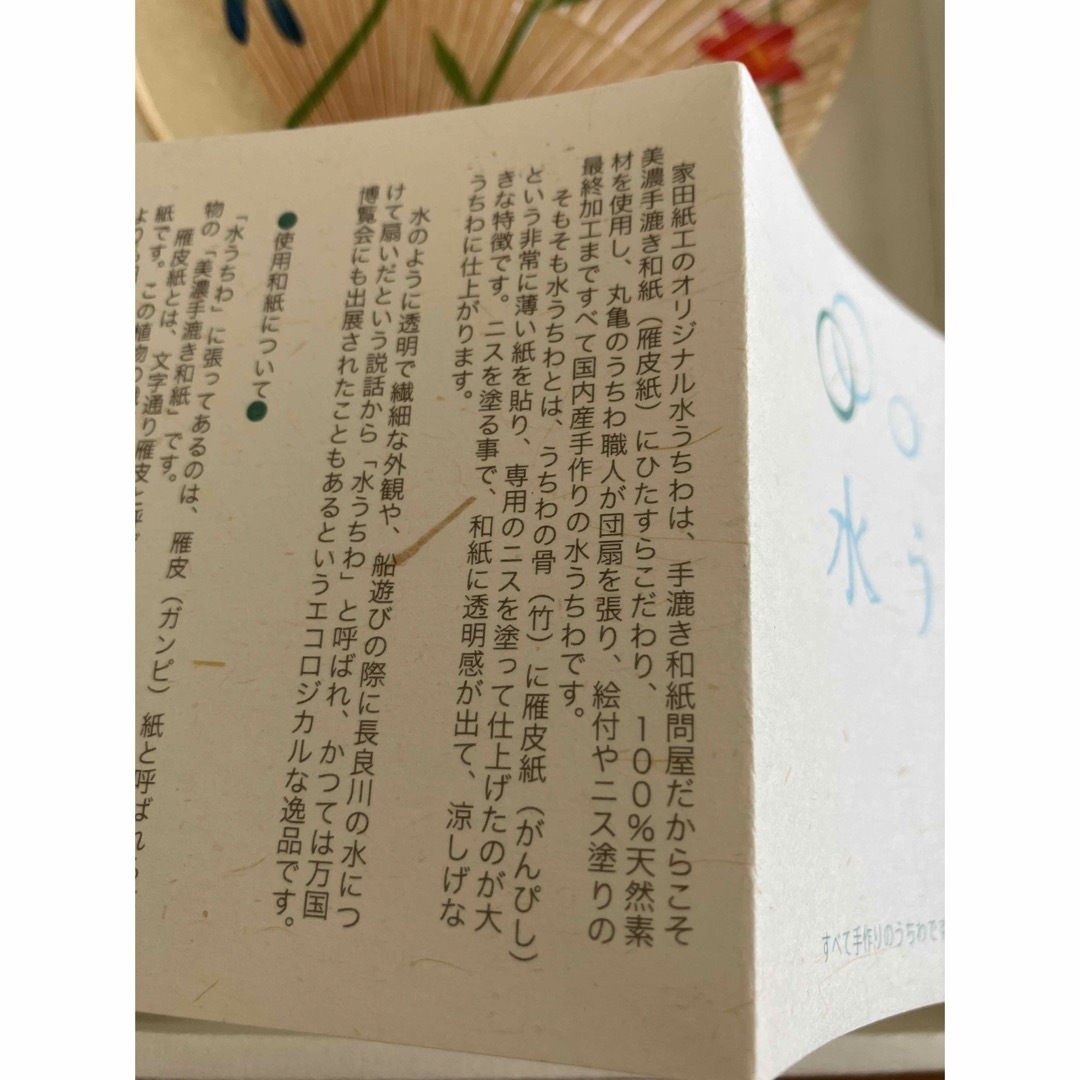 家田紙工のオリジナル水うちわは、手漉き和紙問屋だからこそ
美濃手漉き和紙（雁皮紙）にひたすらこだわり、１００％天然素
材を使用し、丸亀のうちわ職人が団扇を張り、絵付やニス塗りの
最終加工まですべて国内産手作りの水うちわです。
そもそも水うちわとは、うちわの骨（竹）に雁皮紙（がんぴし）
という非常に薄い紙を貼り、専用のニスを塗って仕上げたのが大
きな特徴です。ニスを塗る事で、和紙に透明感が出て、涼しげな
うちわに仕上がります。
水のように透明で繊細な外観や、船遊びの際に長良川の水につ
けて扇いだという説話から「水うちわ」と呼ばれ、かつては万国
博覧会にも出展されたこともあるというエコロジカルな逸品です。
●使用和紙について●
「水うちわ」に張ってあるのは、雁皮（ガンピ）紙と呼ばれ
物の「美濃手漉き和紙」です。
雁皮紙とは、文字通り雁皮と
紙です。この植物の
水う
すべて手作りのうちわです